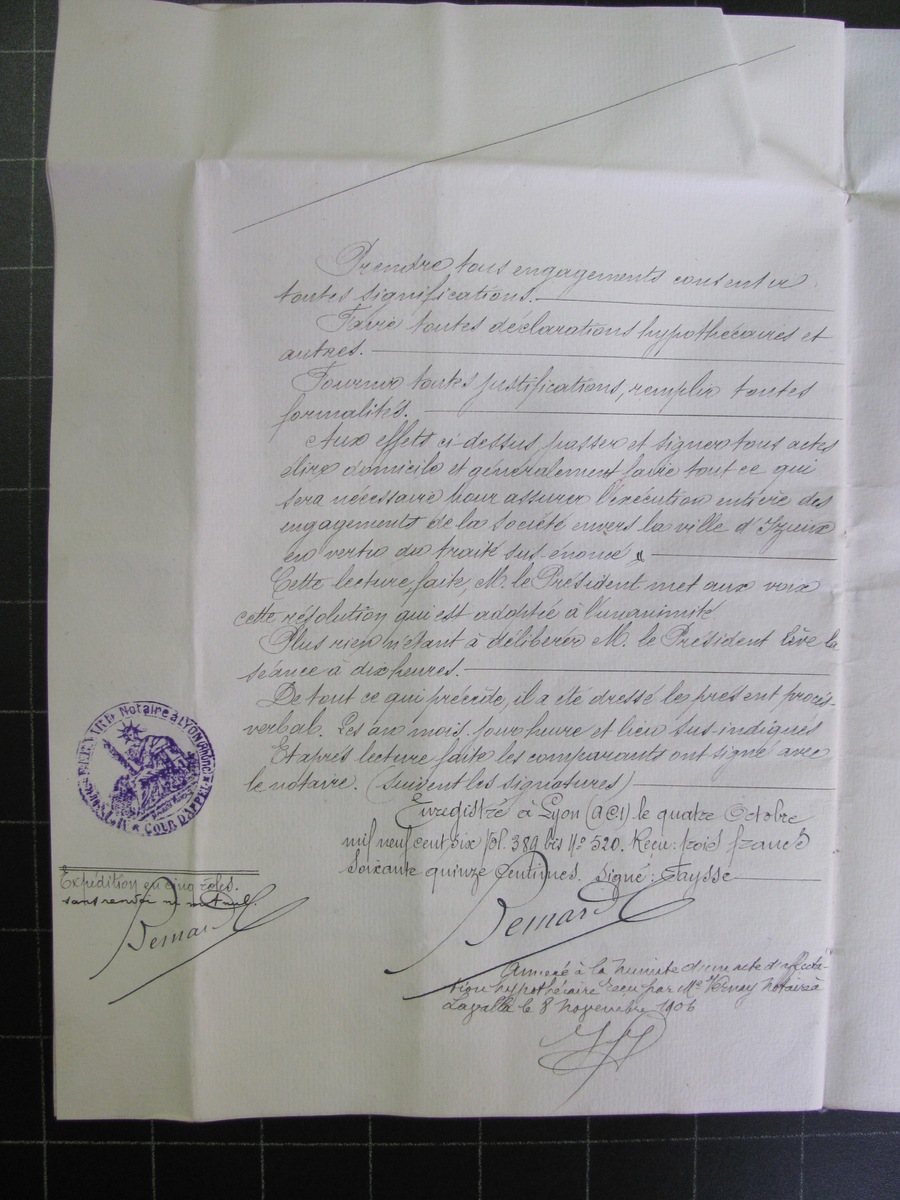 Prendre tous engagements consentir
toutes significations.
Faire toutes déclarations hypothécaires et
autres.
Fournir toutes justifications, remplir toutes
formalités.
Aux effets ci-dessus passer et signer tous actes
élire domicile et généralement faire tout ce qui
sera nécessaire pour assurer l'exécution entière des
engagements de la Société envers la ville d'Izieux
en vertu du traité sus énoncé "
Cette lecture, faite, M. le Président met aux voix
cette résolution qui est adoptée à l'unanimité
Plus rien n'étant à délibérer M. le Président lève la
séance à dix heures.
De tout ce qui précède, il a été dressé le présent procès-
verbal. Les an mois jour heure et lieu sus-indiqués
Et après lecture faite les comparants ont signé avec
le notaire. (suivent les signatures)
Enregistré à Lyon (A@1) le quatre Octobre
mil neuf cent six fol. 38g bis No 520. Reçu: trois francs
soixante quinze centimes. Signé: Faysse
Notaire à LYON (Rhône)
COUR D'APPEL
Expédition en cinq rôles.
sans renvoi ni mot nul.
Bernard
Bernard
Annexé à la minute d'un acte d'affecta-
tion hypothécaire reçu par Me Vernay notaire à
Lavalla le 8 novembre 1906